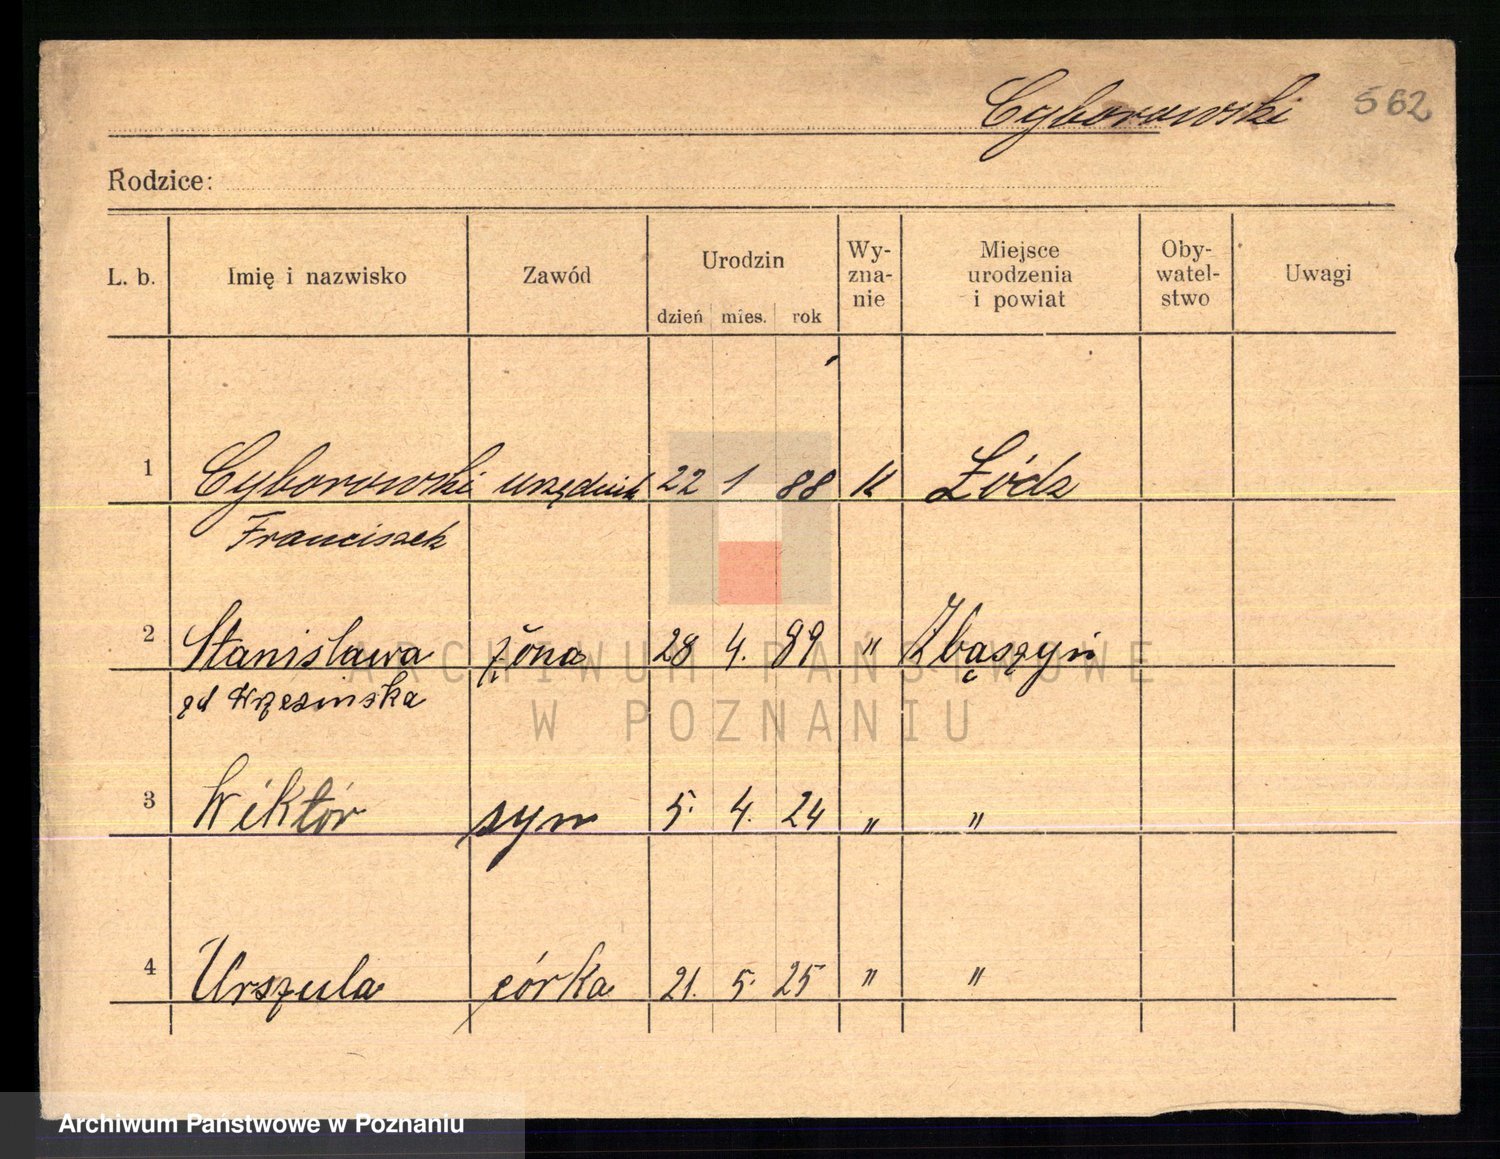 Cyborowski 562
Rodzice:
L. b. Imię i nazwisko Zawód Urodzin dzień mies. rok Wy-zna-nie Miejsce urodzenia i powiat Oby-watel-stwo Uwagi
1 Cyborowski urzędnik 22 1 88 k Łódz
Franciszek
2 Stanisława żona 28 4. 89 " Zbąszyń
zd Krzesinska
3 Wiktór syn 5. 4. 24 " "
4 Urszula córka 21. 5. 25 " "
ARCHIWUM PAŃSTWOWE
W POZNANIU
Archiwum Państwowe w Poznaniu